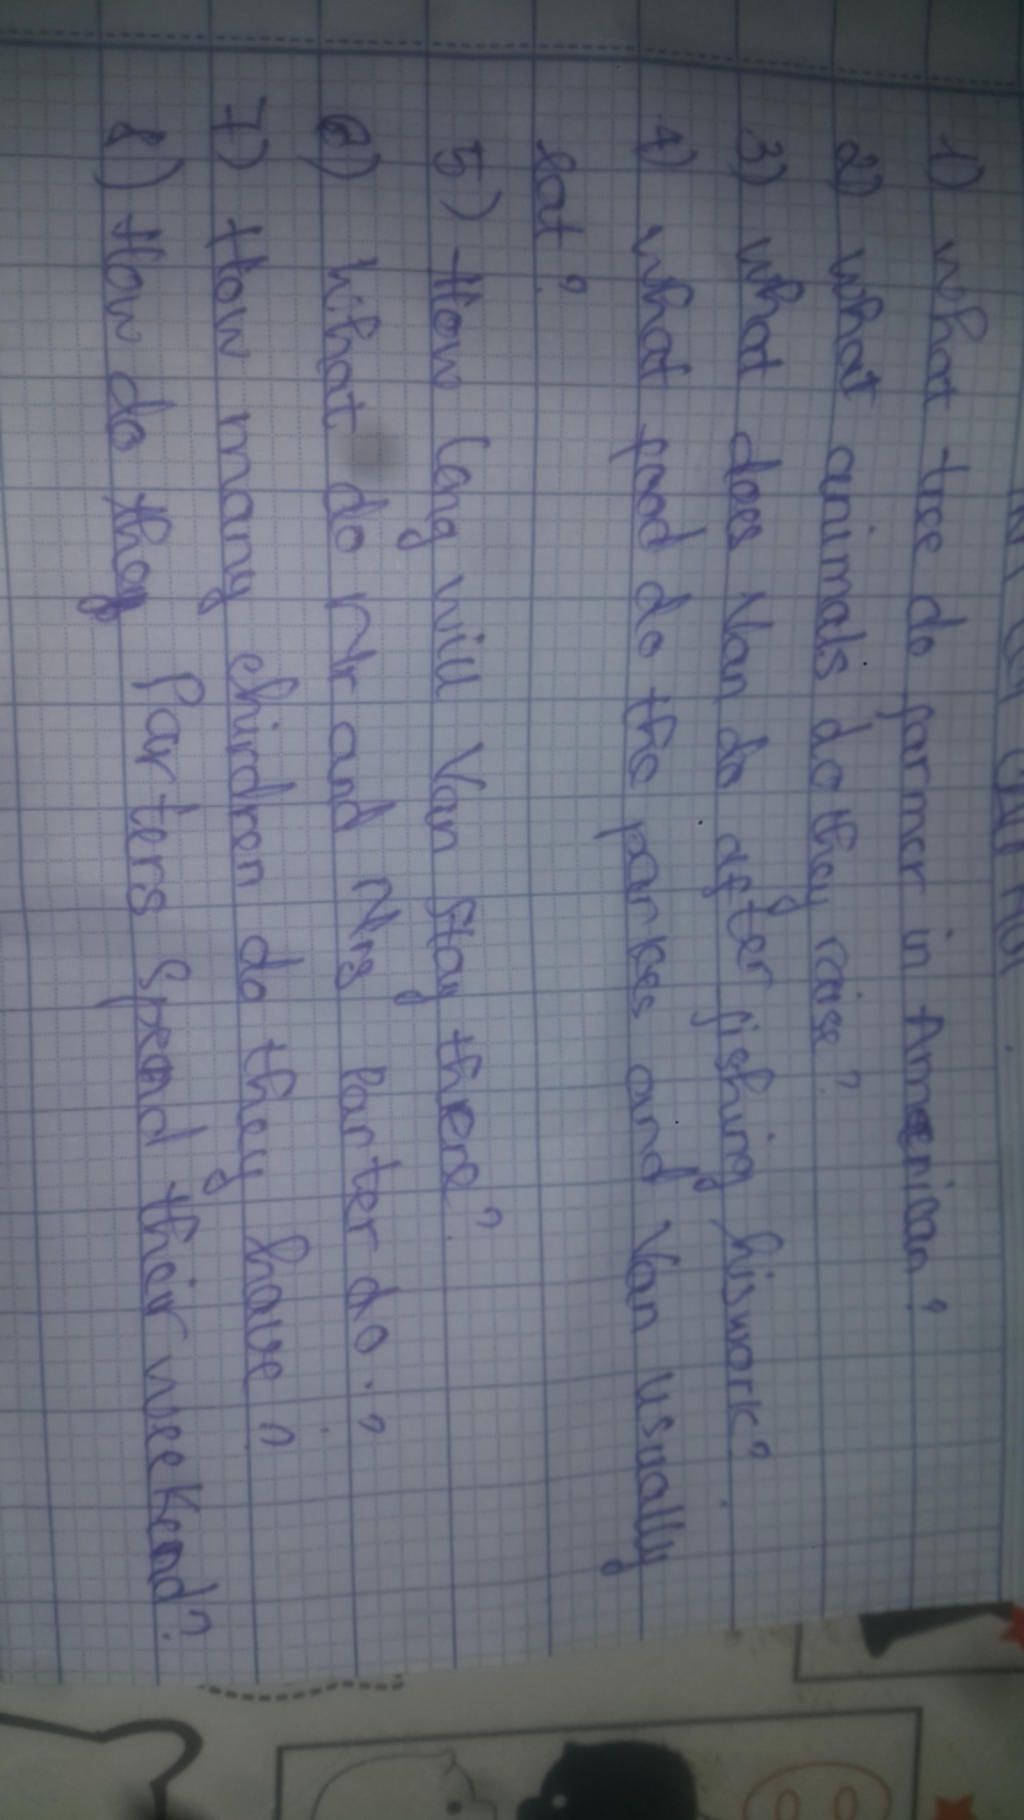 1) what tree do farmer in American?
2) what animals do they raise?
3) what does Van do after fishing his work?
4) what food do the parkes and Van usually
eat?
5) How long will Van stay there?
6) what do Mr and Mrs Parter do.?
7) How many chirdren do they have?
8) How do they Parters Spend their weekend?